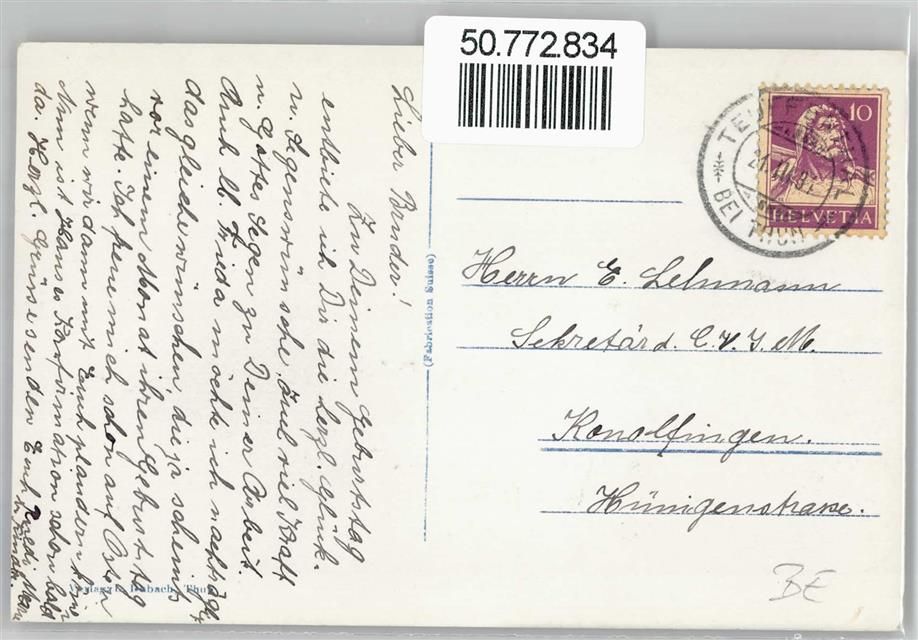 50.772.834
10
HELVETIA
BEI THUN
Herrn E. Lehmann
Sekretär d. C.V.J.M.
Konolfingen.
Hünigenstrasse.
BE
(Fabrication Suisse)
Lieber Bruder!
Zu Deinem Geburtstag
entbiete ich Dir die herzl. Glück-
u. Segenswünsche, viel Kraft
u. Gottes Segen zu Deiner Arbeit.
Auch lb. Frida möchte ich nachträgl.
das gleiche wünschen, die ja schon
vor einem Monat ihren Geburtstag
hatte. Ich freue mich schon auf
wenn wir dann mit Euch plaudern
ist Hansens Konfirmation schon bald
da. Herzl. Grüsse senden Euch Ruedi
Thun